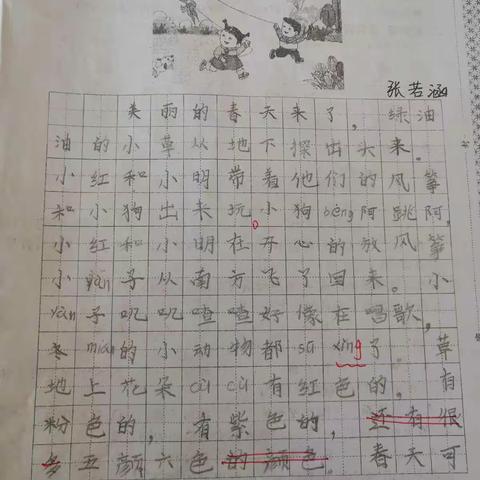 张若涵
美丽的春天来了，绿油
油的小草从地下探出头来。
小红和小明带着他们的风筝
和小狗出来玩。小狗bèng阿跳阿，
小红和小明在开心的放风筝
小yàn子从南方飞了回来。小
yàn子叽叽喳喳好像在唱歌，
冬mián的小动物都sū xǐng了。草
地上花朵cù cù有红色的，有
粉色的，有紫色的，还有很
多五颜六色的颜色。春天可